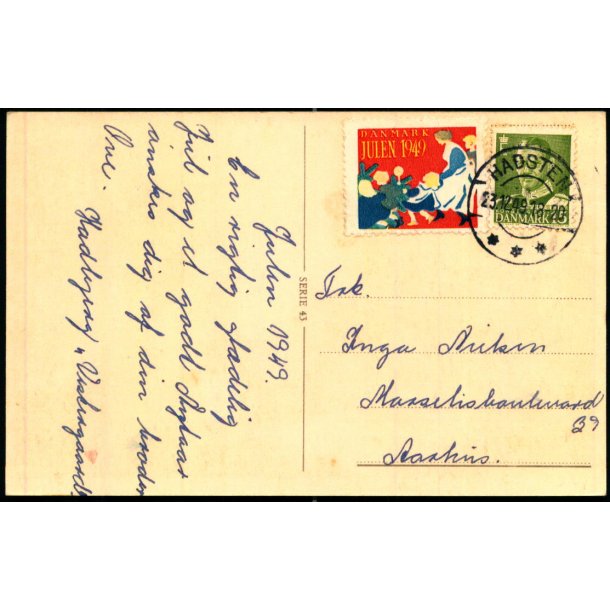 Julen 1949.
En rigtig glædelig
Jul og et godt Nytaar
ønskes dig af din broder
Ove. Hadbjerg "Vestergaard"
SERIE 43
DANMARK
JULEN 1949
HADSTEN
23.12.49.18-20
DANMARK
Frk.
Inga
Marselisboulevard
39
Aarhus.